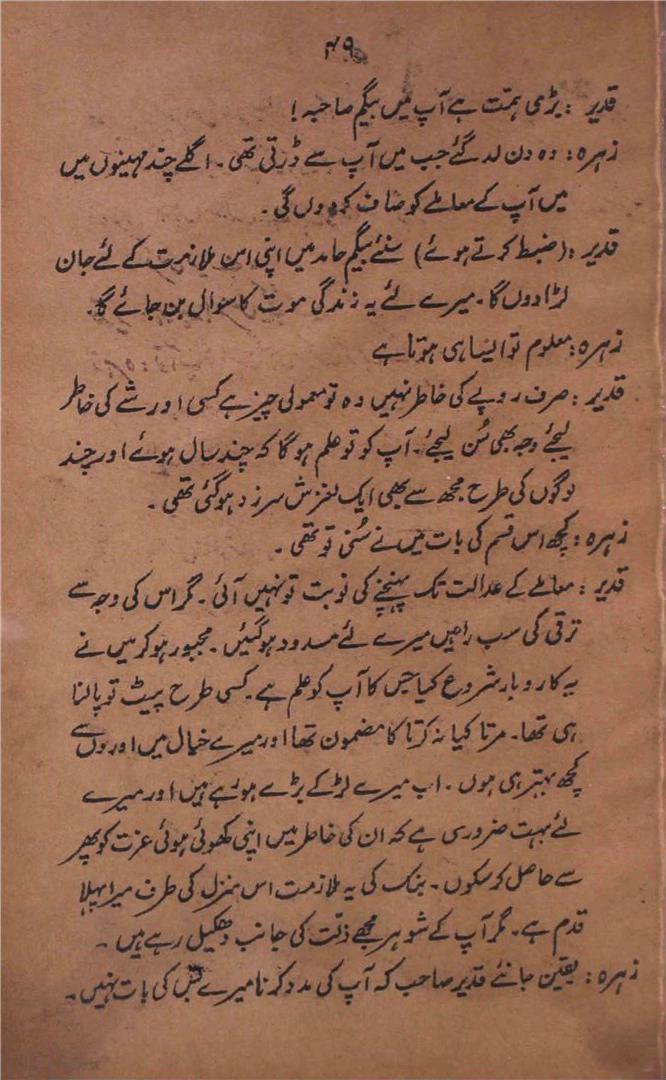 ۴۹
قدیر : بڑی ہمّت ہے آپ میں بیگم صاحبہ !
زہرہ : وہ دن لد گئے جب میں آپ سے ڈرتی تھی ۔ اگلے چند مہینوں میں
میں آپ کے معاملے کو صاف کر دوں گی ۔
قدیر : (ضبط کرتے ہوئے) سنئے بیگم حامد میں اپنی اس ملازمت کے لئے جان
لڑا دوں گا ۔ میرے لئے یہ زندگی موت کا سوال بن جائے گا ۔
زہرہ : معلوم تو ایسا ہی ہوتا ہے
قدیر : صرف روپے کی خاطر نہیں وہ تو معمولی چیز ہے کسی اور شے کی خاطر
لیجئے وجہ بھی سُن لیجئے ۔ آپ کو تو علم ہو گا کہ چند سال ہوئے اور چند
لوگوں کی طرح مجھ سے بھی ایک لغزش سرزد ہو گئی تھی ۔
زہرہ : کچھ اس قسم کی بات میں نے سُنی تو تھی ۔
قدیر : معاملے کے عدالت تک پہنچنے کی نوبت تو نہیں آئی ۔ مگر اس کی وجہ سے
ترقی کی سب راہیں میرے لئے مسدود ہو گئیں ۔ مجبور ہو کر میں نے
یہ کاروبار شروع کیا جس کا آپ کو علم ہے ۔ کسی طرح پیٹ تو پالنا
ہی تھا ۔ مرتا کیا نہ کرتا کا مضمون تھا اور میرے خیال میں اوروں سے
کچھ بہتر ہی ہوں ۔ اب میرے لڑکے بڑے ہو رہے ہیں اور میرے
لئے بہت ضروری ہے کہ ان کی خاطر میں اپنی کھوئی ہوئی عزت کو پھر
سے حاصل کر سکوں ۔ بنک کی یہ ملازمت اس منزل کی طرف میرا پہلا
قدم ہے ۔ مگر آپ کے شوہر مجھے ذلّت کی جانب دھکیل رہے ہیں ۔
زہرہ : یقین جانئے قدیر صاحب کہ آپ کی مدد کرنا میرے بس کی بات نہیں ۔